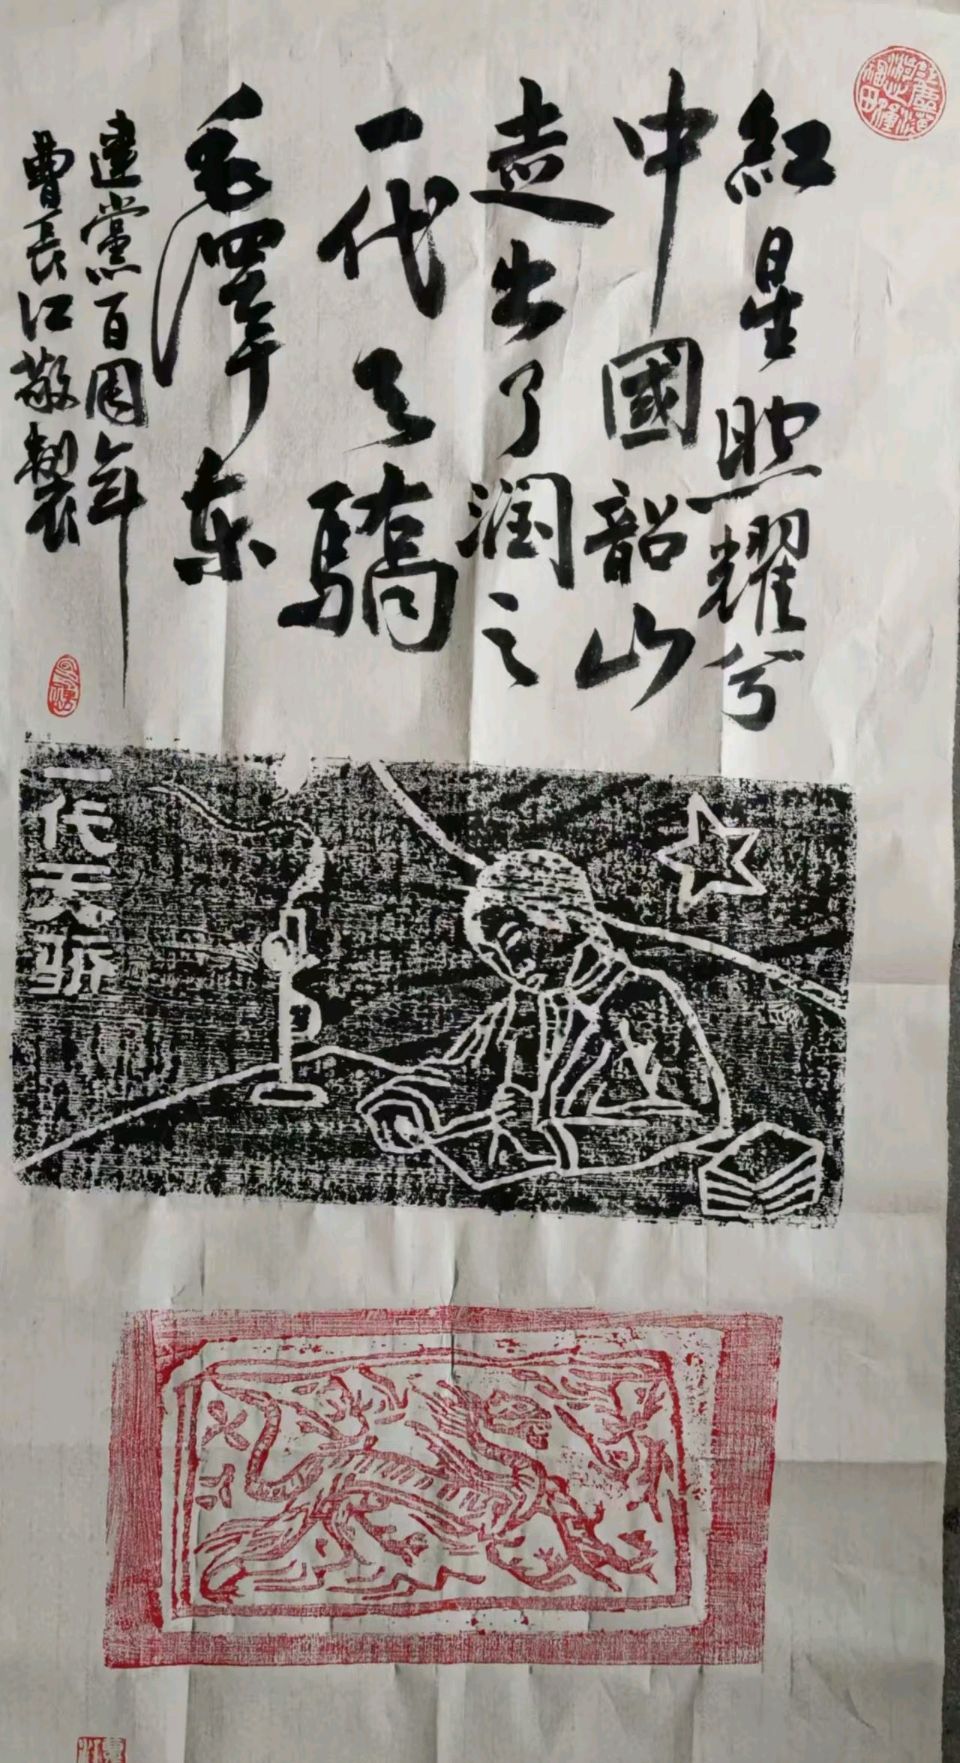 紅星照耀兮
中國韶山
走出了潤之
一代天驕
毛澤东
建黨百周年
曹長江敬製
一代天骄